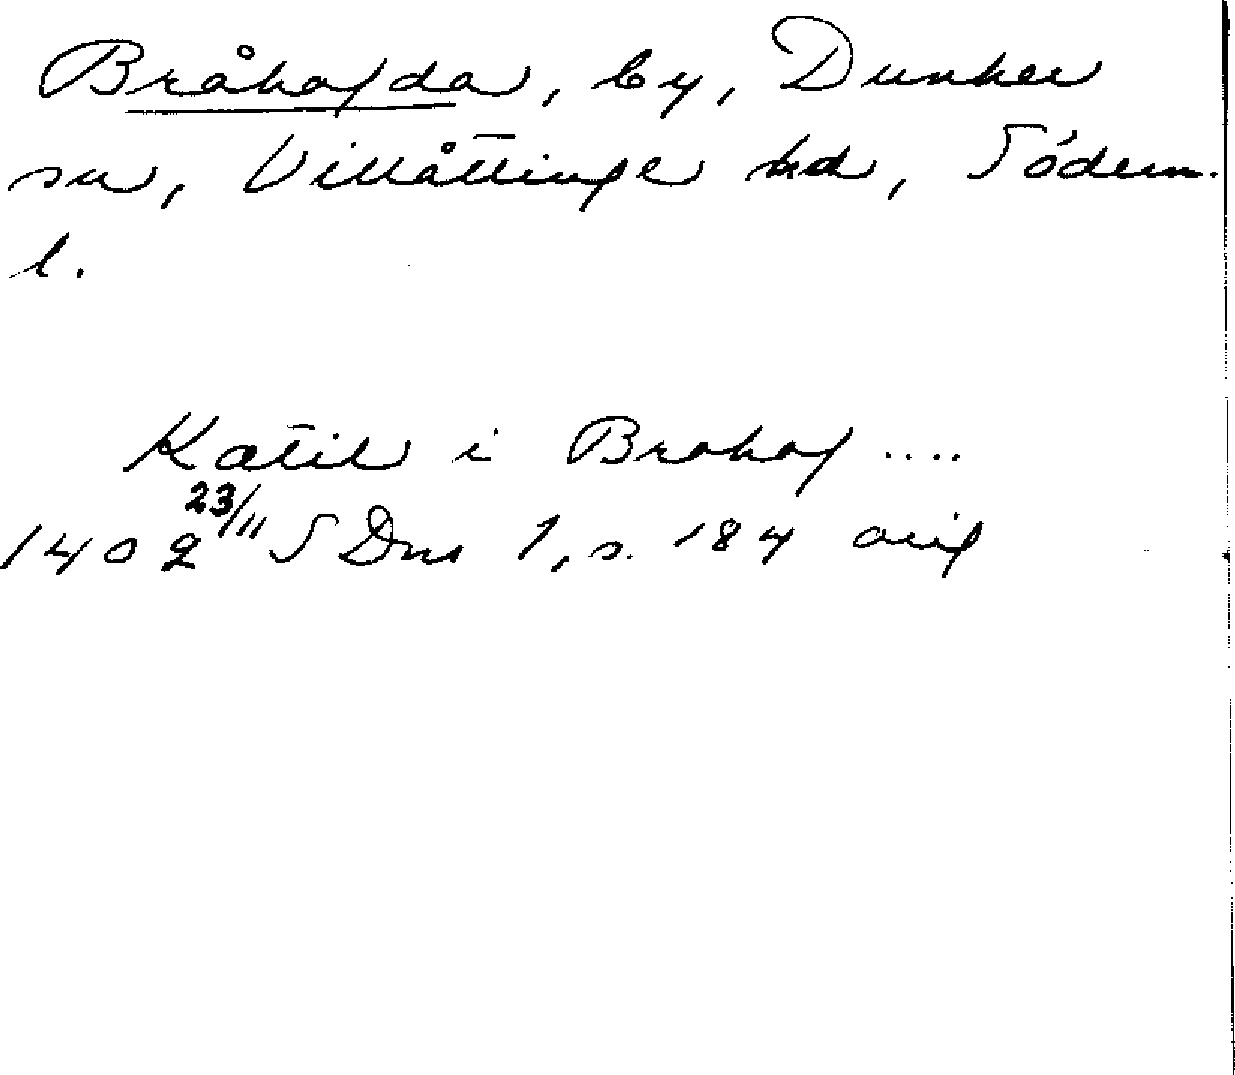 Bråhofda, by, Dunker
sn, Villåttinge hd, Söderm.
l.
Katil i Brohof ....
1402 23/11 SDns 1, s. 184 orig